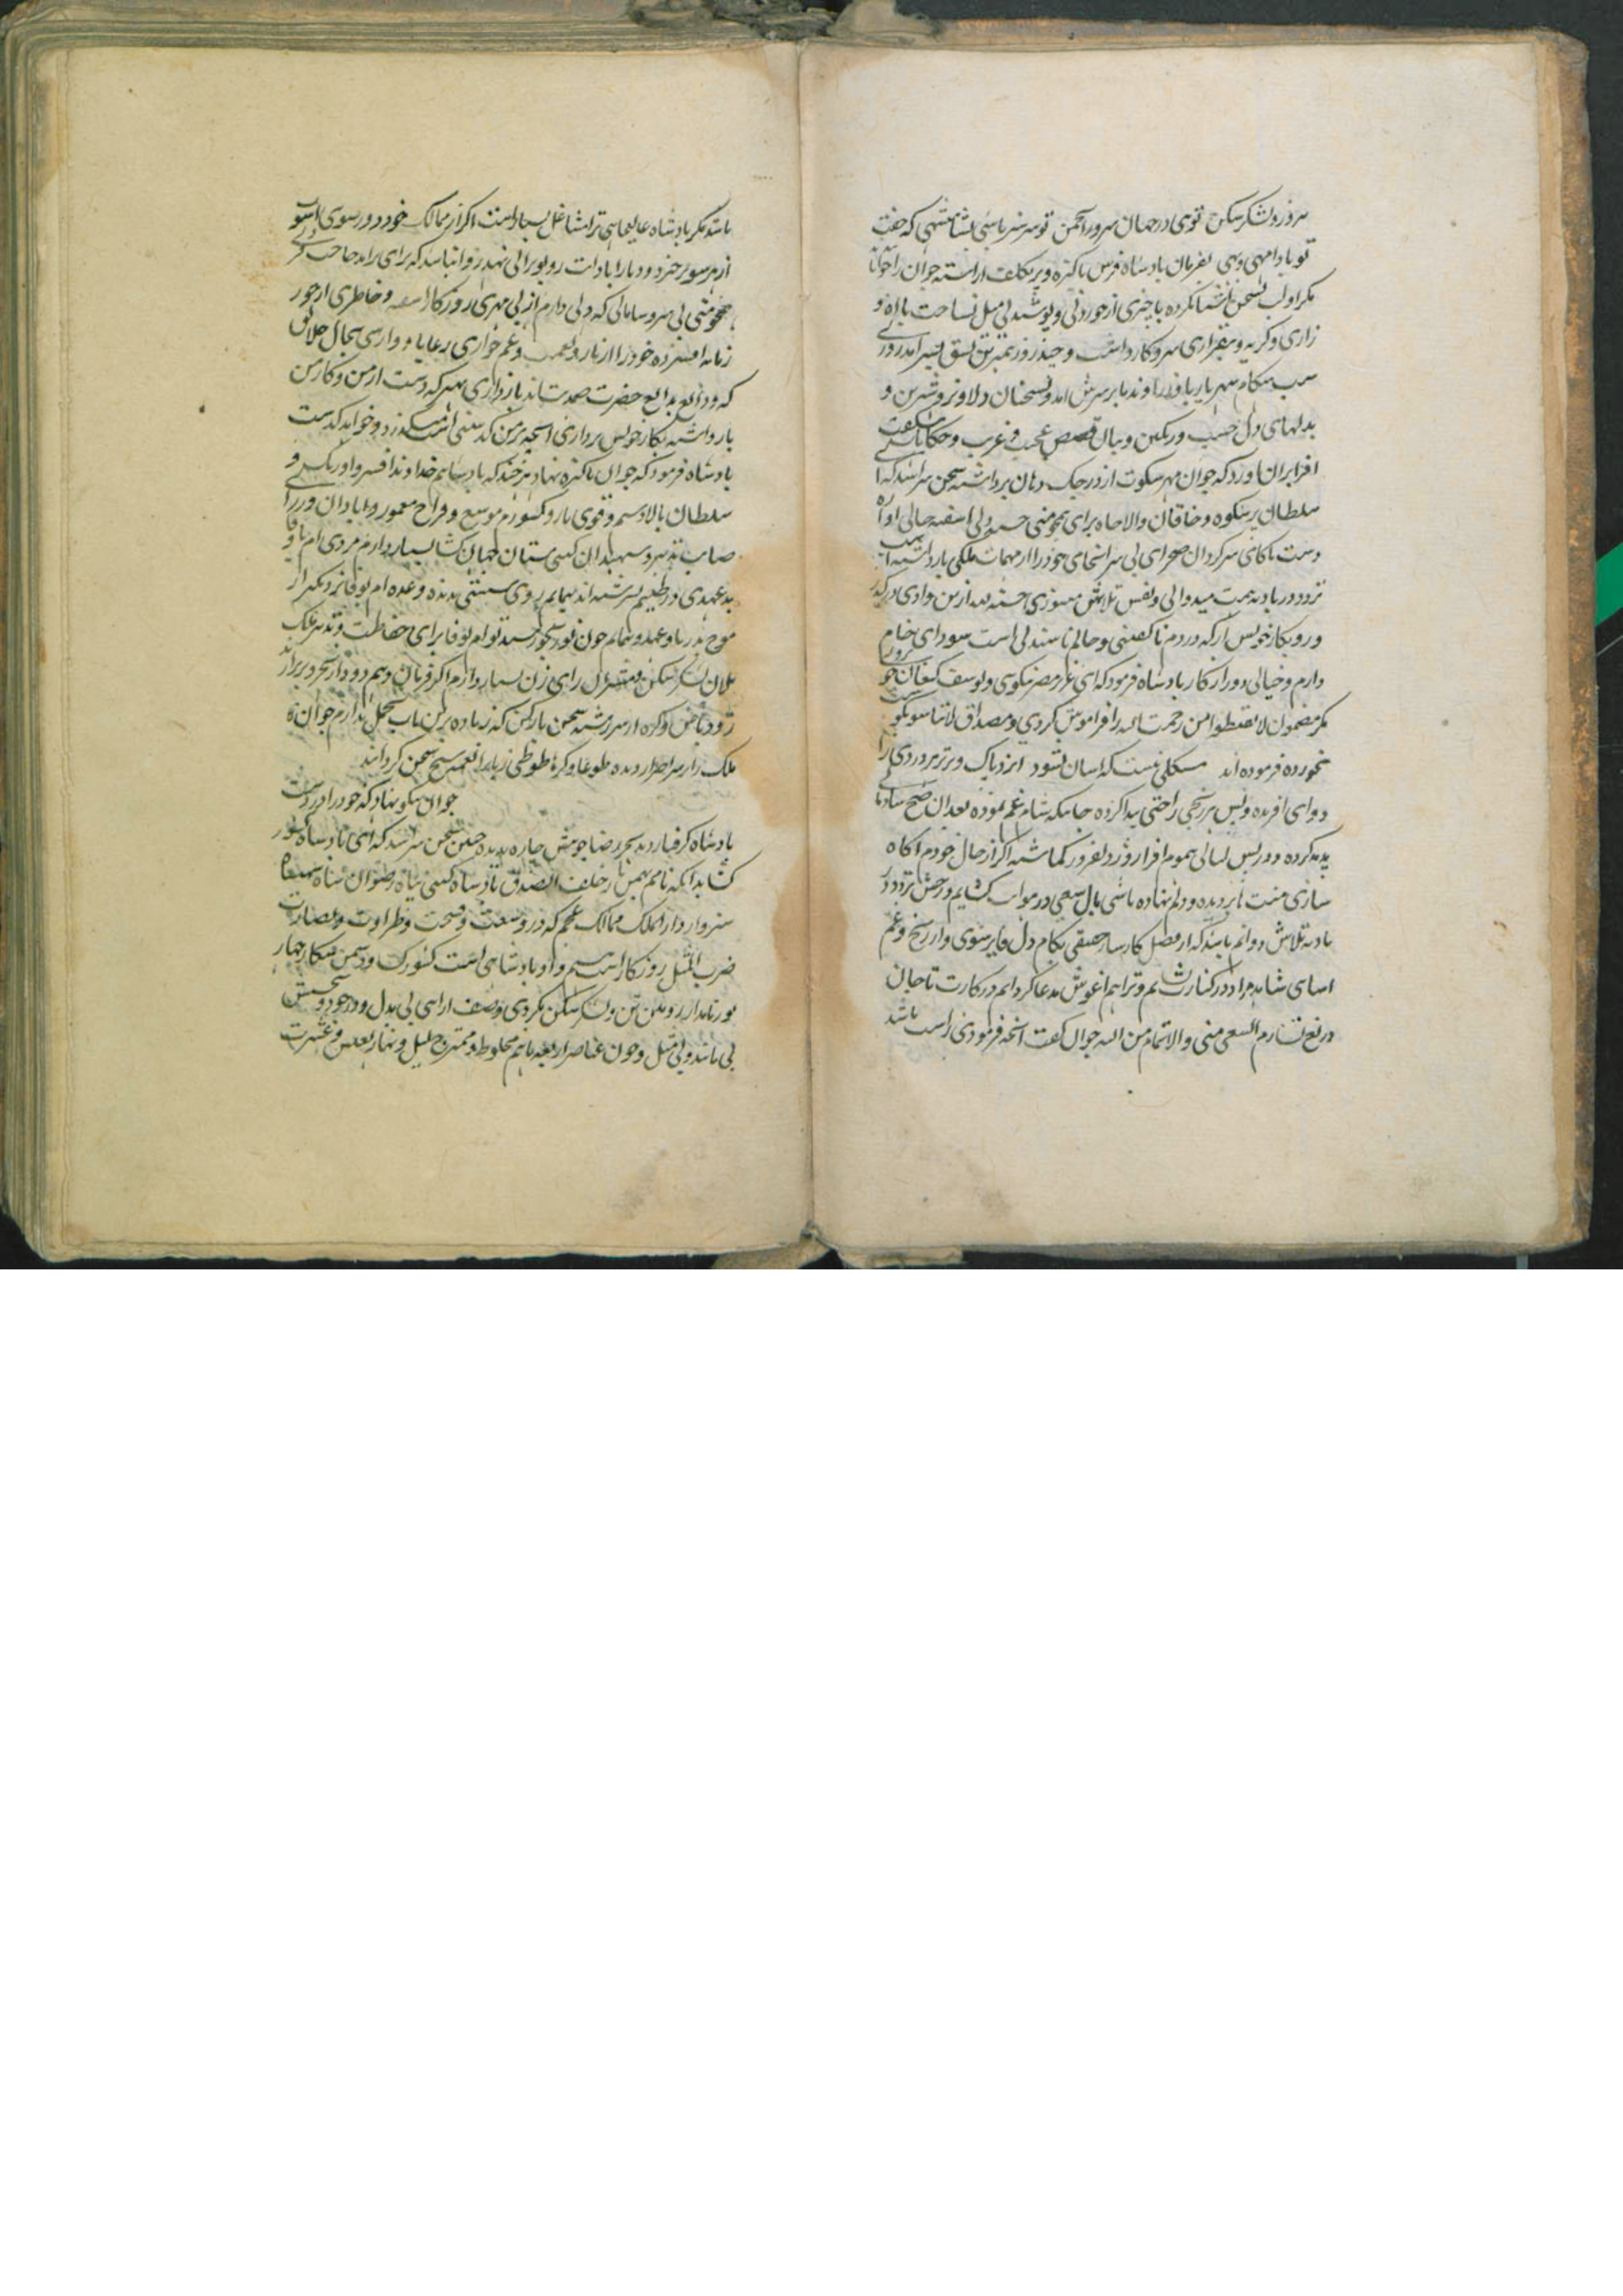 سرور و لشکر شکن توی در جهان سرور انجمن تو سرسبز باشی بشاهنشهی که جفت
تو بادا مهی وبهی بفرمان بادشاه فرس پاکیزه و پر تکلف اراسته جوان را خوانا
مکر او لب بسخن اشنا نکرده بچیزی از خوردنی و پوشیدنی میل نساخت با اه و
زاری و کریه و بیقراری سر و کار داشت و چند روز بهمین نسق بسر امد روزی
شب هنکام شهریار با فر و اورند بر سرش امد و بسخنان دلاویز و شیرین و
بذلهای دل حسپ و رنکین و بیان قصص عجیب و غریب و حکایات شکفت
افزا بران اورد که جوان مهر سکوت از درجک دهان برداشته سخن سرا شد که ای
سلطان پرشکوه و خاقان والاجاه برای همچو منی خسته دلی اشفته حالی اواره
دشت ناکامی سرکردان صحرای بی سرانجامی خود را از مهمات ملکی بازداشته
تردد در بادیه همت میدوانی و نفس تلاش میسوزی بعد ازین وادی درکذر
و رو بکار خویش ار که دردم ناکفتنی و حالم ناشنیدنی است سودای خام
دارم و خیالی دور از کار بادشاه فرمود که ای عزیز مصر نیکوئی و یوسف کنعان خوبروئی
مکر مضمون لا تقنطوا من رحمت الله را فراموش کردی و مصداق لا تیاسو بکوشت
نخورده فرموده اند مشکلی نیست که اسان نشود ایزد پاک و برتر هر دردی را
دوای افریده و پس هر رنجی راحتی پیدا کرده چنانکه شام غم نموده بعد ان صبح شادی
پدید کرده و در پس لیالی هموم افزا روز دلفروز کماشته اکر از حال خودم اکاه
سازی منت بر دیده و دلم نهاده باشی بال سعی در هوایت کشایم و رخش تردد در
بادیه تلاش دوانم باشد که از فضل کارساز حقیقی بکام دل فایز شوی و از رنج و غم
اسای شاهد مراد در کنارت نشانم و ترا هم اغوش مدعا کردانم در کارت تا جان
دریغ ندارم السعی منی و الاتمام من الله جوان کفت انچه فرمودی راست باشد
باشد مکر بادشاه عالیجاهی ترا مشاغل بسیار است اکر از ممالک خود دور شوی اشوب
از هر سو برخیزد و دیار ابادات رو بویرانی نهد روا نباشد که برای راندن حاجت
همچو منی بی سر و سامانی که دلی دارم از بی مهری روزکار اشفته و خاطری از جور
زمانه افسرده خود را از تیمار و غم خواری رعایا و وارسی بحال خلائق
که ودائع بدائع حضرت صمدیت اند بازداری بهتر که دست از من و کار من
بازداشته بکار خویش پردازی انچه بر من کذشتنی است میکذرد و خواهد کذشت
بادشاه فرمود که جوان پاکیزه نهاد هرچند که بادشاهم خداوند افسر و اورنک و
سلطان بالادستم و قوی بازو کشورم وسیع و فراخ معمور و ابادان وزرای
صایب تدبیر و سپهبدان کیتی ستان جهان کشا بسیار دارم مردی ام باوفا
بدعهدی در طینتم نسرشته اند پیمانم روی سستی ندیده وعده ام بوفا نزدیکتر از
موج بدریا و عهد و پیمانم چون نور بخورشید توام بوفا برای حفاظت و تدبیر ملک
یلان لشکر شکن و مشیران رای زن بسیار دارم اکر فرمان دهم دود از بحر و بر برارند
زود باش و کره از سر رشته سخن بازکن که زیاده برین تاب تحمل ندارم جوان
ملک زار سر اصرار دیده طوعا و کرها طوطی زبان را نغمه سنج سخن کردانید
جوان نیکو نهاد که خود را در دست
بادشاه کرفتار دید بجز رضا جویش چاره ندیده چنین سخن سرا شد که ای بادشاه کشور
کشا بدانکه نامم بهمن یار خلف الصدق بادشاه کیتی پناه رضوان شاه شهنشاه
سزاوار دار الملک ممالک عجم که در وسعت و فسحت و طراوت و نضارت
ضرب المثل روزکار است هستم و او بادشاهی است کشورک و دشمن شکار چهار
پور نامدار روئین تن و لشکر شکن بکردی و صف ارائی بی بدل و در جود و بخشش
بی مانند و بی مثل و چون عناصر اربعه باهم مخلوط و ممتزج لیل و نهار بعیش و عشرت